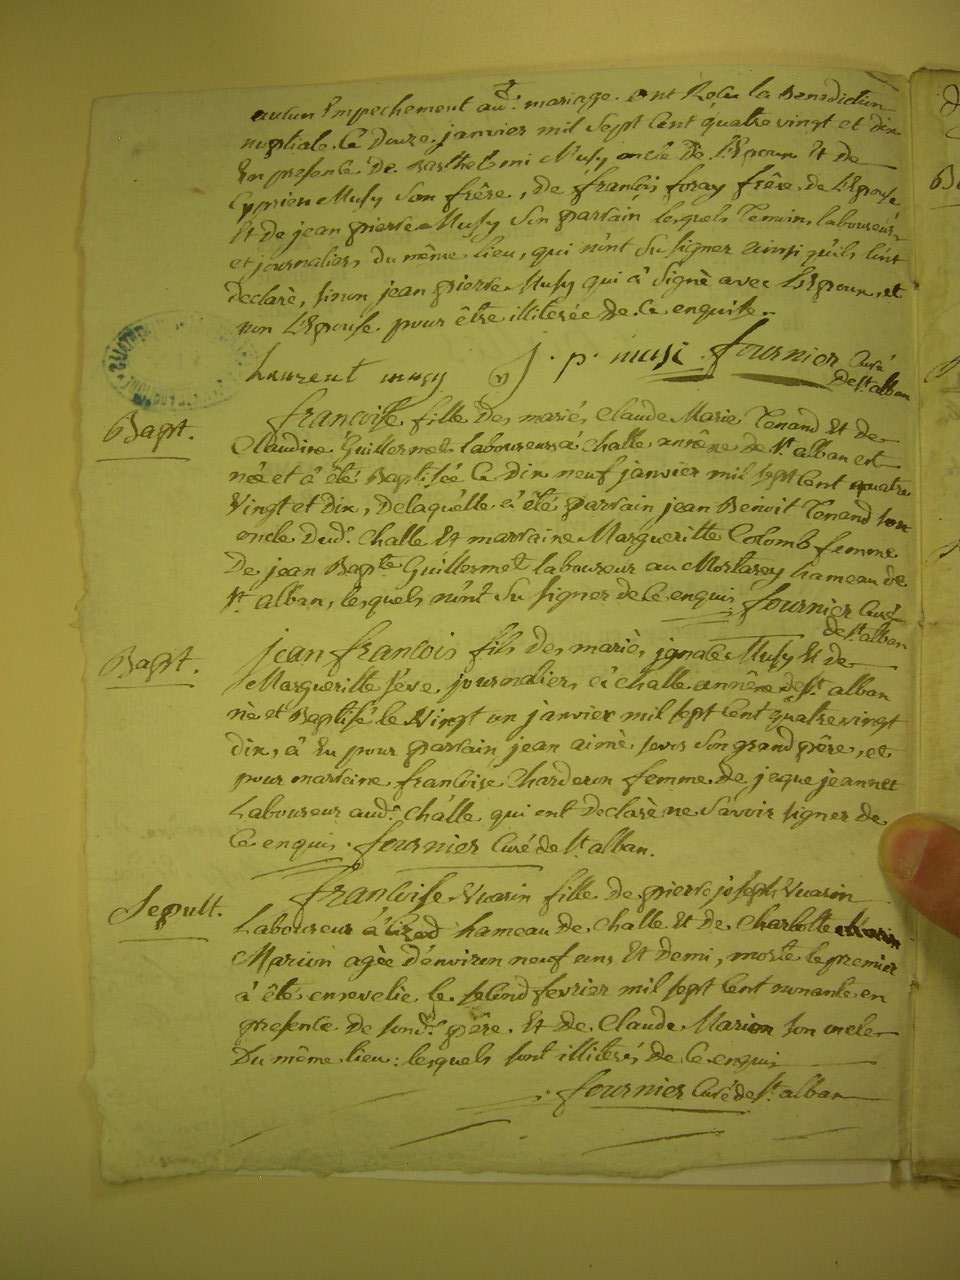 aucun Empechement aud.t mariage. ont Reçu la Benediction
nuptiale Le Douze janvier mil Sept Cent quatre vingt et dix
En presence De Barthelemi Musy oncle de L'Epoux Et de
Cyprien Musy Son frère, de françois foray frère de L'Epouse
Et de jean pierre Musy Son parrain lesquels Temoins, laboureurs
et journaliers du même lieu, qui n'ont Su signer ainsi qu'ils l'ont
declarè, sinon jean pierre Musy qui à Signè avec L'Epoux, et
non L'Epouse pour être illiterée de Ce enquise.
Laurent musy J. p. musi fournier Curé
de St alban
Bapt.
francoise fille des mariés Claude Marie Tenand Et de
Claudine Guillermet laboureurs à Challe annêxe de St alban est
née et à été Baptisée Le dix neuf janvier mil sept Cent quatre
Vingt et dix, De laquelle à été parrain jean Benoit Tenand son
oncle Dud.t Challe Et marraine Margueritte Colomb femme
De jean Bapte Guillermet laboureur au Mortarey hameau de
St alban, lesquels n'ont Su signer de Ce enquis fournier Curé
de St alban
Bapt.
jean francois fils Des mariès ignace Musy Et de
Margueritte Séve journaliers à Challe annêxe de St alban
nè et Baptisé le Vingt un janvier mil sept Cent quatre vingt
dix, à Eu pour parrain jean aimè Son grand père, et
pour marraine francoise Charderon femme de jaque jeannet
Laboureur aud.t Challe qui ont Declarè ne Savoir signer de
Ce enquis. fournier Curé de St alban.
Sepult.
francoise Vuarin fille de pierre joseph Vuarin
Laboureur à hameau de Challe Et de Charlotte
Marion agèe d'environ neuf ans Et demi, morte le premier
à été ensevelie le Second fevrier mil sept Cent nonante en
presence de Sond.t père Et de Claude Marion son oncle
Du même lieu: lesquels sont illiterés de Ce enquis
fournier Curé de St alban